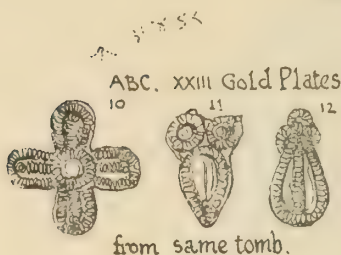 ABC. XXIII Gold Plates
10 11 12
from same tomb.